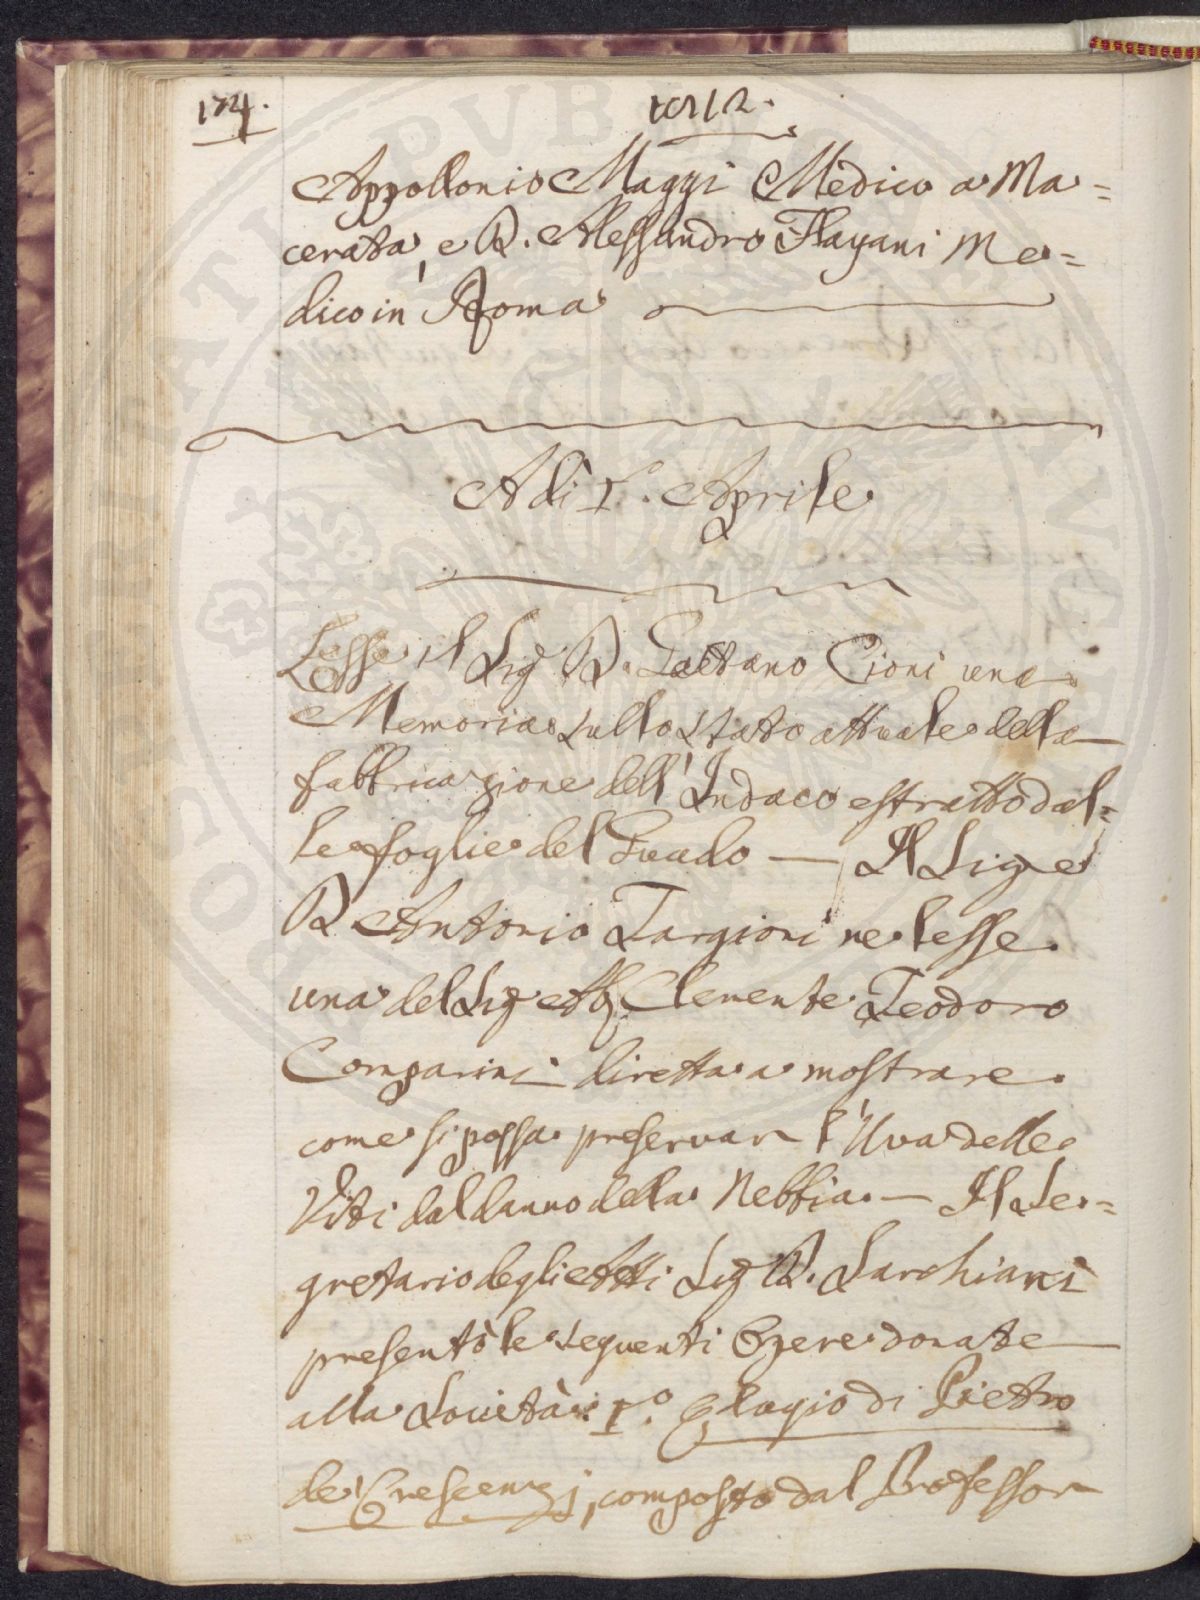 174.
1812.
Appollonio Maggi Medico a Ma=
cerata, e D. Alessandro Flayani Me=
dico in Roma
A dì 1.° Aprile
Lesse il Sig D. Gaetano Cioni una
Memoria sullo stato attuale della
fabbricazione dell'Indaco estratto dal=
le foglie del Guado — Il Sige
D Antonio Targioni ne lesse
una del Sig Ab Clemente Teodoro
Comparini diretta a mostrare
come si possa preservar l'Uva delle
Viti dal danno della Nebbia — Il Se=
gretario degli Atti Sig D. Sarchiani
presentò le seguenti Opere donate
alla Società: 1.° Elogio di Pietro
de Crescenzj, composto dal Professor